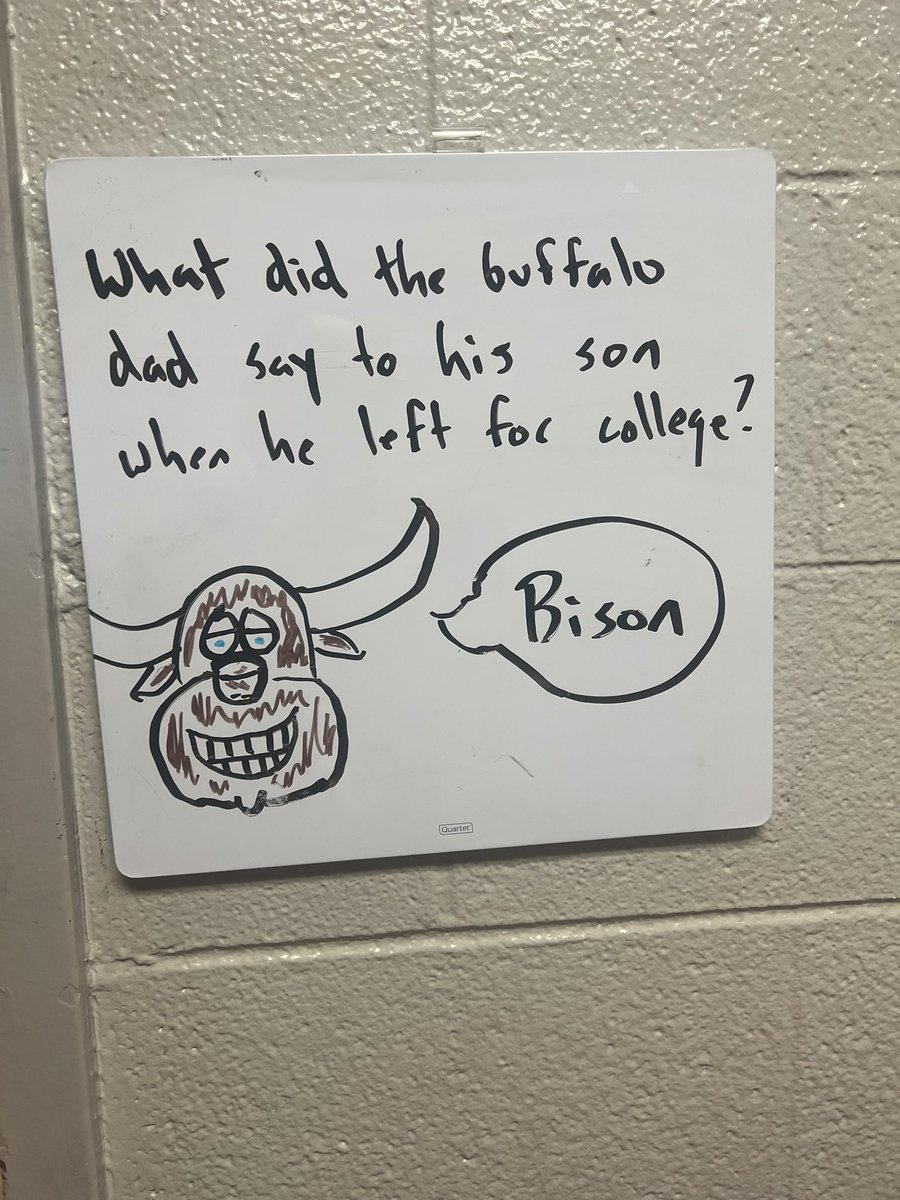 What did the buffalo
dad say to his son
when he left for college?
Bison
Quartet